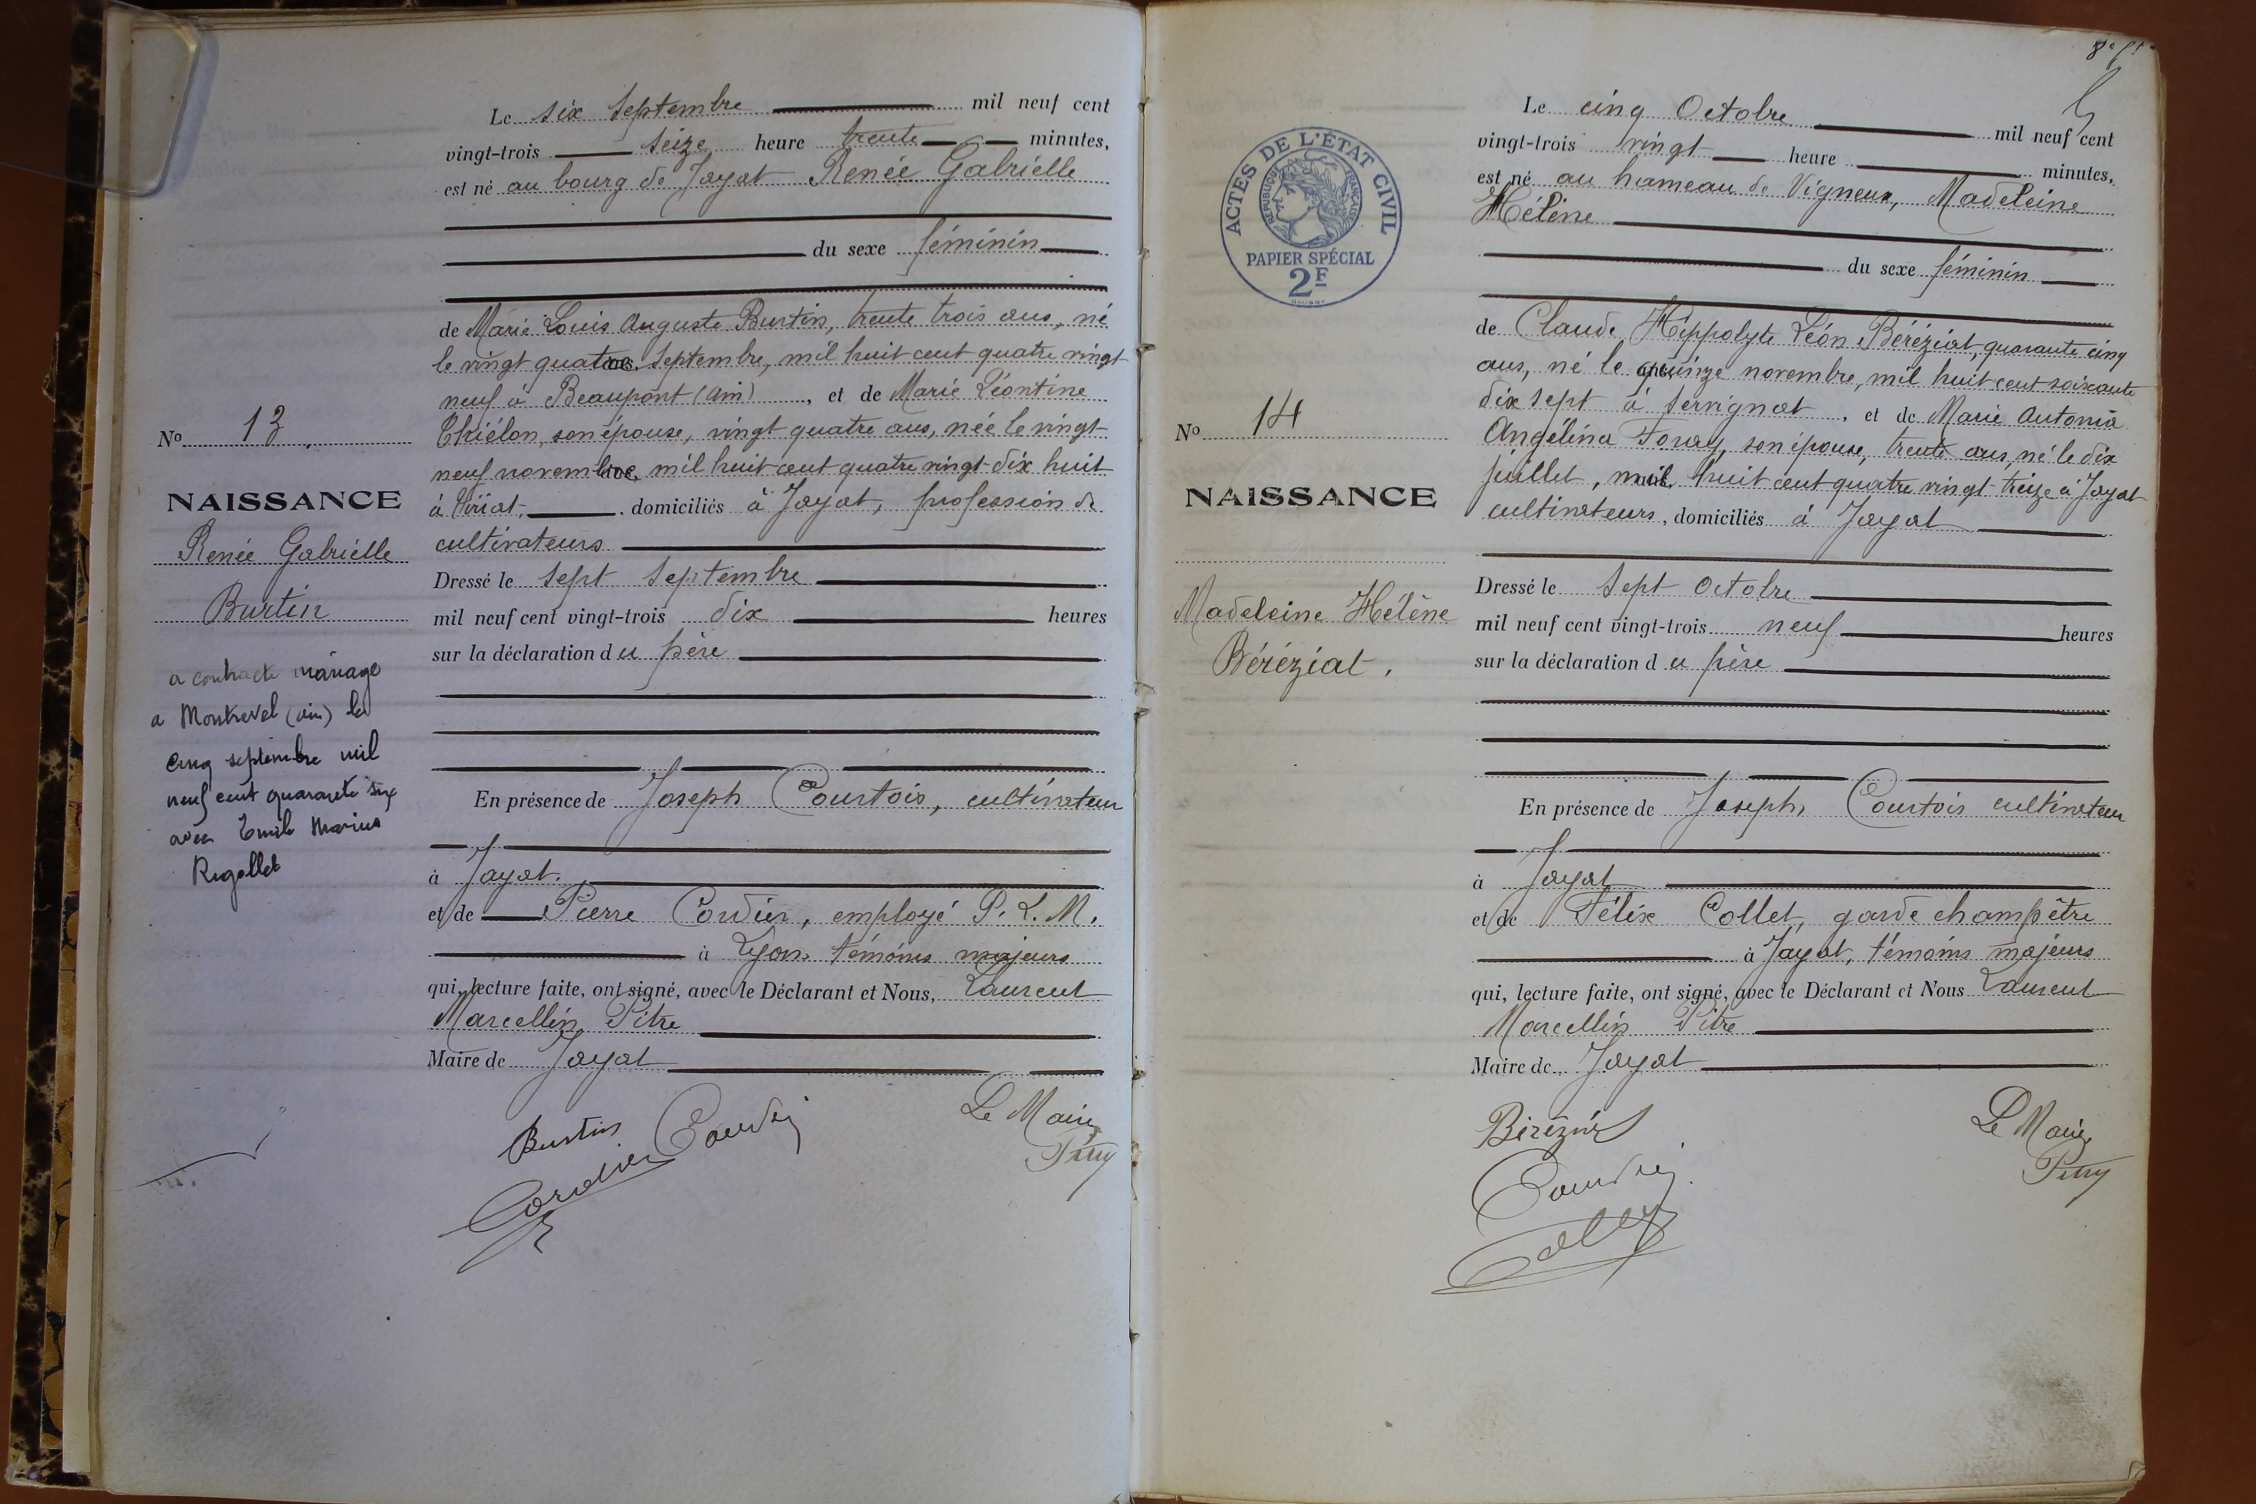 Le six Septembre mil neuf cent
vingt-trois seize heure trente minutes,
est né au bourg de Jayat Renée Gabrielle
du sexe féminin
de Marie Louis Auguste Burtin, trente trois ans, né
le vingt quatre Septembre, mil huit cent quatre vingt
neuf à Beaupont (Ain), et de Marie Léontine
son épouse, vingt quatre ans, née le vingt
neuf novembre mil huit cent quatre vingt dix huit
à Viriat, domiciliés à Jayat, profession de
cultivateurs
Dressé le sept Septembre
mil neuf cent vingt-trois dix heures
sur la déclaration du père
En présence de Joseph Courtois, cultivateur
à Jayat.
et de Pierre Cordier, employé P. L. M.
à Lyon témoins majeurs
qui, lecture faite, ont signé, avec le Déclarant et Nous, Laurent
Marcellin Pitre
Maire de Jayat
Burtin
Cordier
Le Maire
No 13.
NAISSANCE
Renée Gabrielle
Burtin
a contracté mariage
a Montrevel (ain) le
cinq septembre mil
neuf cent quarante six
avec Emile Marius
Rigollet
Le cinq Octobre mil neuf cent
vingt-trois vingt heure minutes,
est né au hameau de Vigneux, Madeleine
Hélène
du sexe féminin
de Claude Hippolyte Léon Béréziat, quarante cinq
ans, né le quinze novembre, mil huit cent soixante
dix sept à Servignat, et de Marie Antonia
Angélina Foray, son épouse, trente ans, né le dix
juillet, mil huit cent quatre vingt treize à Jayat
cultivateurs, domiciliés à Jayat
Dressé le Sept Octobre
mil neuf cent vingt-trois neuf heures
sur la déclaration du père
En présence de Joseph Courtois cultivateur
à Jayat
et de Félix Collet, garde champêtre
à Jayat, témoins majeurs
qui, lecture faite, ont signé, avec le Déclarant et Nous Laurent
Marcellin Pitre
Maire de Jayat
Béréziat
Le Maire
ACTES DE L'ÉTAT CIVIL
RÉPUBLIQUE FRANÇAISE
PAPIER SPÉCIAL
2F
No 14
NAISSANCE
Madeleine Hélène
Béréziat.